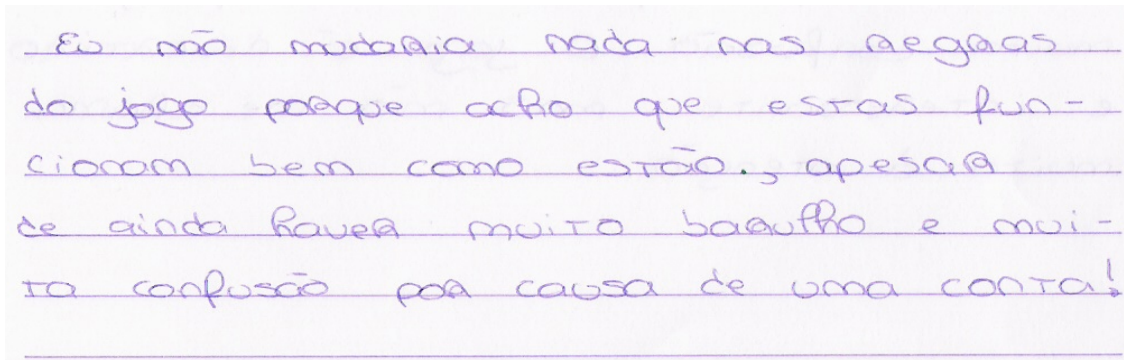 Eu não mudaria nada nas regras
do jogo porque acho que estas fun-
cionam bem como estão., apesar
de ainda haver muito barulho e mui-
ta confusão por causa de uma conta!